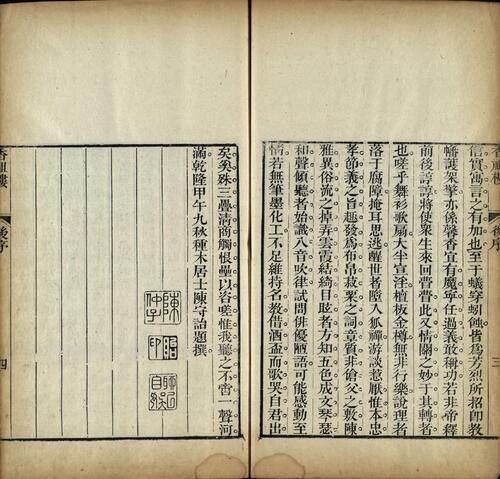 信實寓言之有加也至于蟻穿蚓蝕皆為芳烈所招卽教
幡謨架擎亦係馨香宜有魔寧任過義敢稱功若非帝釋
前後諄諄將使衆生來回營營此又情關之妙于其轉者
也嗟乎舞衫歌扇大半宣淫檀板金樽無非行樂說理者
落于腐障掩耳思逃醒世者墮入狐禪游談惹厭惟本忠
孝節義之旨趣發為布帛菽粟之詞章質非傖父之敷陳
雅異俗流之掉弄雲霞結綺目眩者方知五色成文琴瑟
和聲傾聽者始識八音吹律試問俳優陋語可能感動至
情若無筆墨化工不足維持名敎借酒盃而歌哭自君出
香
樓
後序
三
矣奚殊三疊清商觸恨壘以咨嗟惟我聽之不啻一聲河
滿乾隆甲午九秋種木居士陳守詒題撰
陳
仲子
印
香
樓
後序
四